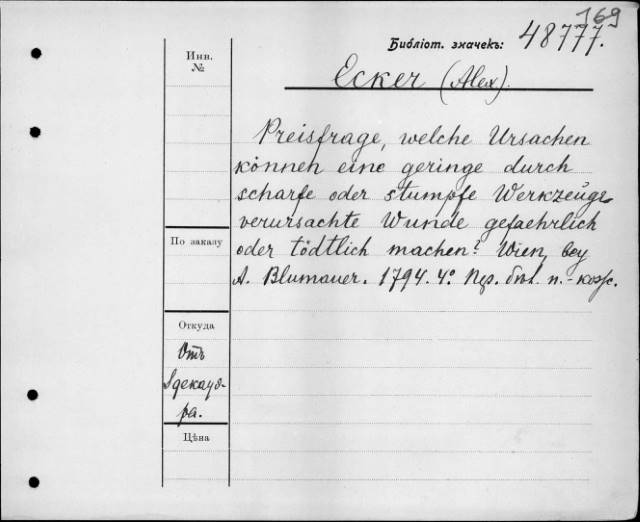 169
Библіот. значекъ: 48777.
Инв.
№
Ecker (Alex).
Preisfrage, welche Ursachen
können eine geringe durch
scharfe oder stumpfe Werkzeuge
verursachte Wunde gefaehrlich
По заказу
oder tödtlich machen? Wien, bey
A. Blumauer. 1794. 4º
Откуда
Отъ
Цѣна